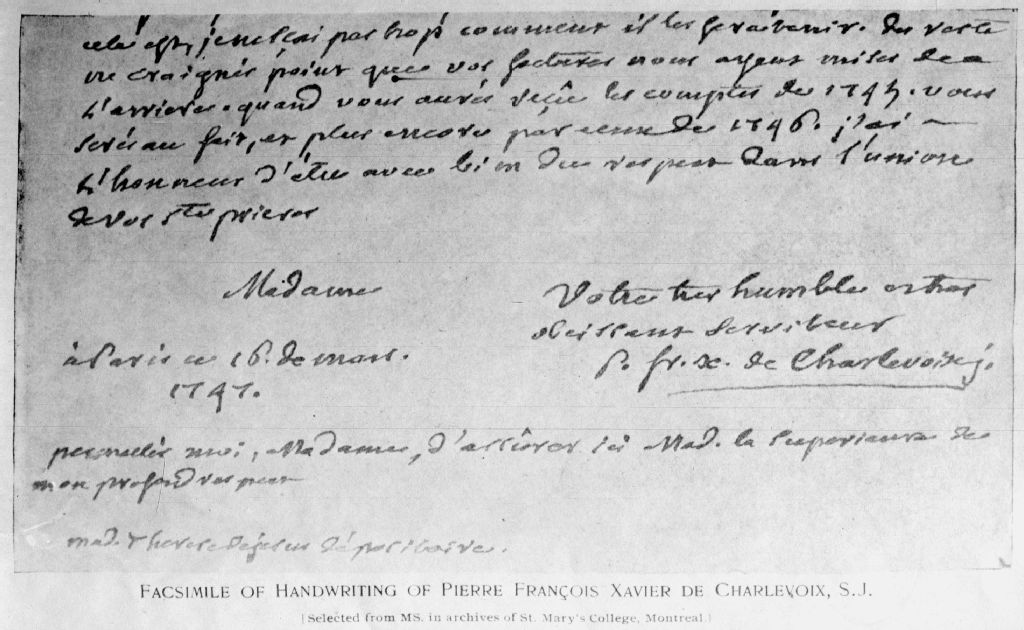 cela est, je ne scai pas trop comment il les fera tenir. du reste
ne craignés point que vos factures nous ayent mises de
L'arriere. quand vous aurés reçû les comptes de 1745. vous
serés au fait, et plus encore par ceux de 1746. j'ai
L'honneur d'être avec bien du respect dans l'union
de vos Stes prieres
Madame
Votre tres humble et tres
obeissant Serviteur
à Paris ce 16. de mars.
P. fr. x. de Charlevoix j.
1747.
permettés moi, Madame, d'assûrer ici Mad. la Superieure de
mon profond respect
mad. Therese de jesus dépositaire.
FACSIMILE OF HANDWRITING OF PIERRE FRANÇOIS XAVIER DE CHARLEVOIX, S.J.
[Selected from MS. in archives of St. Mary's College, Montreal.]